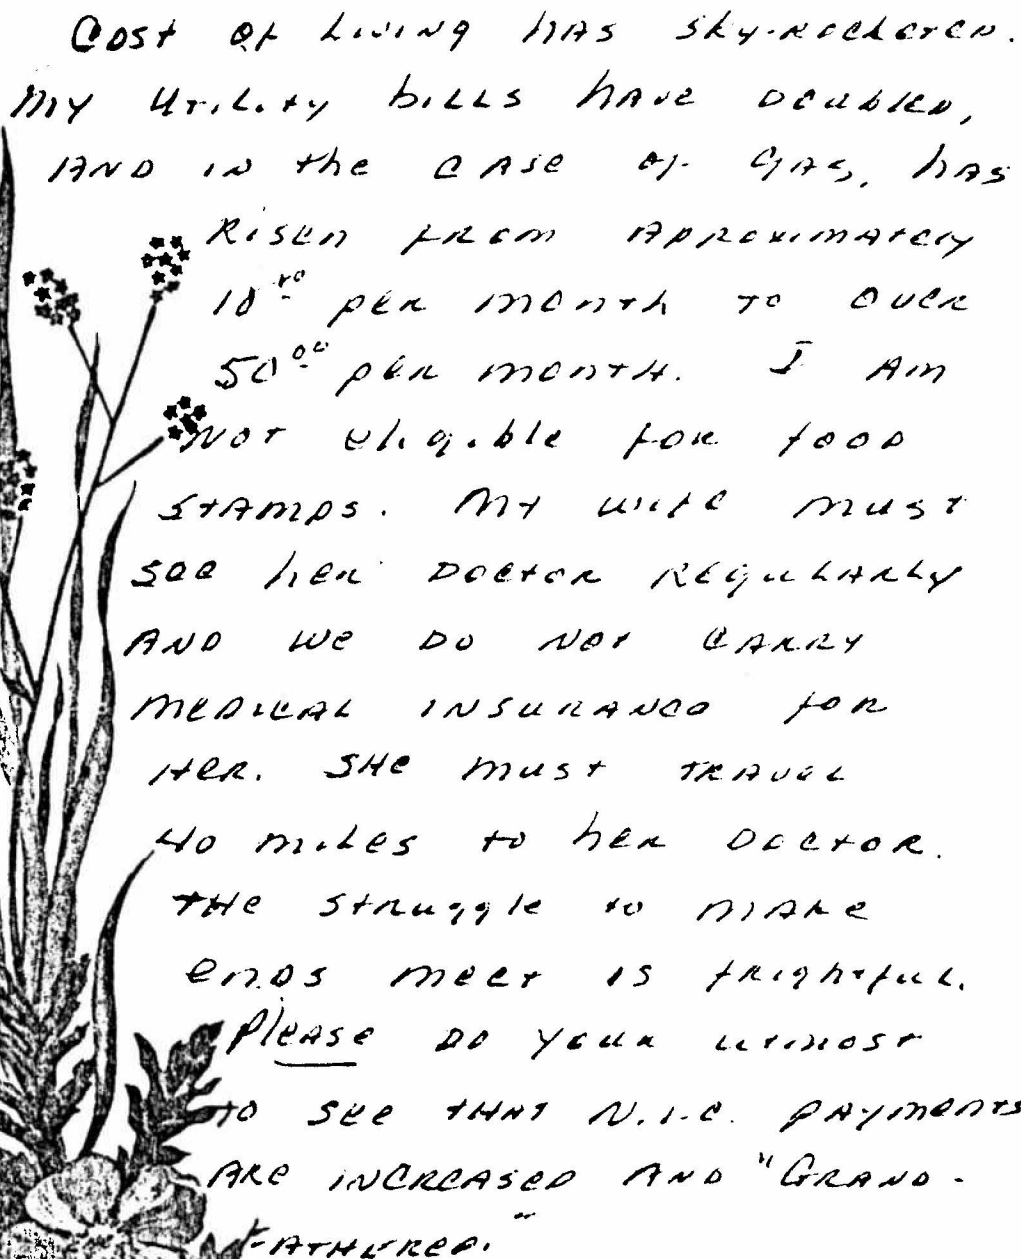 Cost of Living has sky-rocketed.
My Utility bills have doubled,
AND in the CASE of GAS, has
Risen from Aproximately
10⁰⁰ per month to over
50⁰⁰ per month. I Am
Not eligible for food
stAmps. My wife must
see her Doctor Regularly
AND we Do Not CARRY
MEDICAL INSURANCE for
Her. SHe must TRAVEL
40 miles to her Doctor.
THe struggle to make
ends meet is frightful.
Please Do your utmost
to see THAT N.I.C. payments
ARe INCREASED AND "GRAND-
FATHERED."